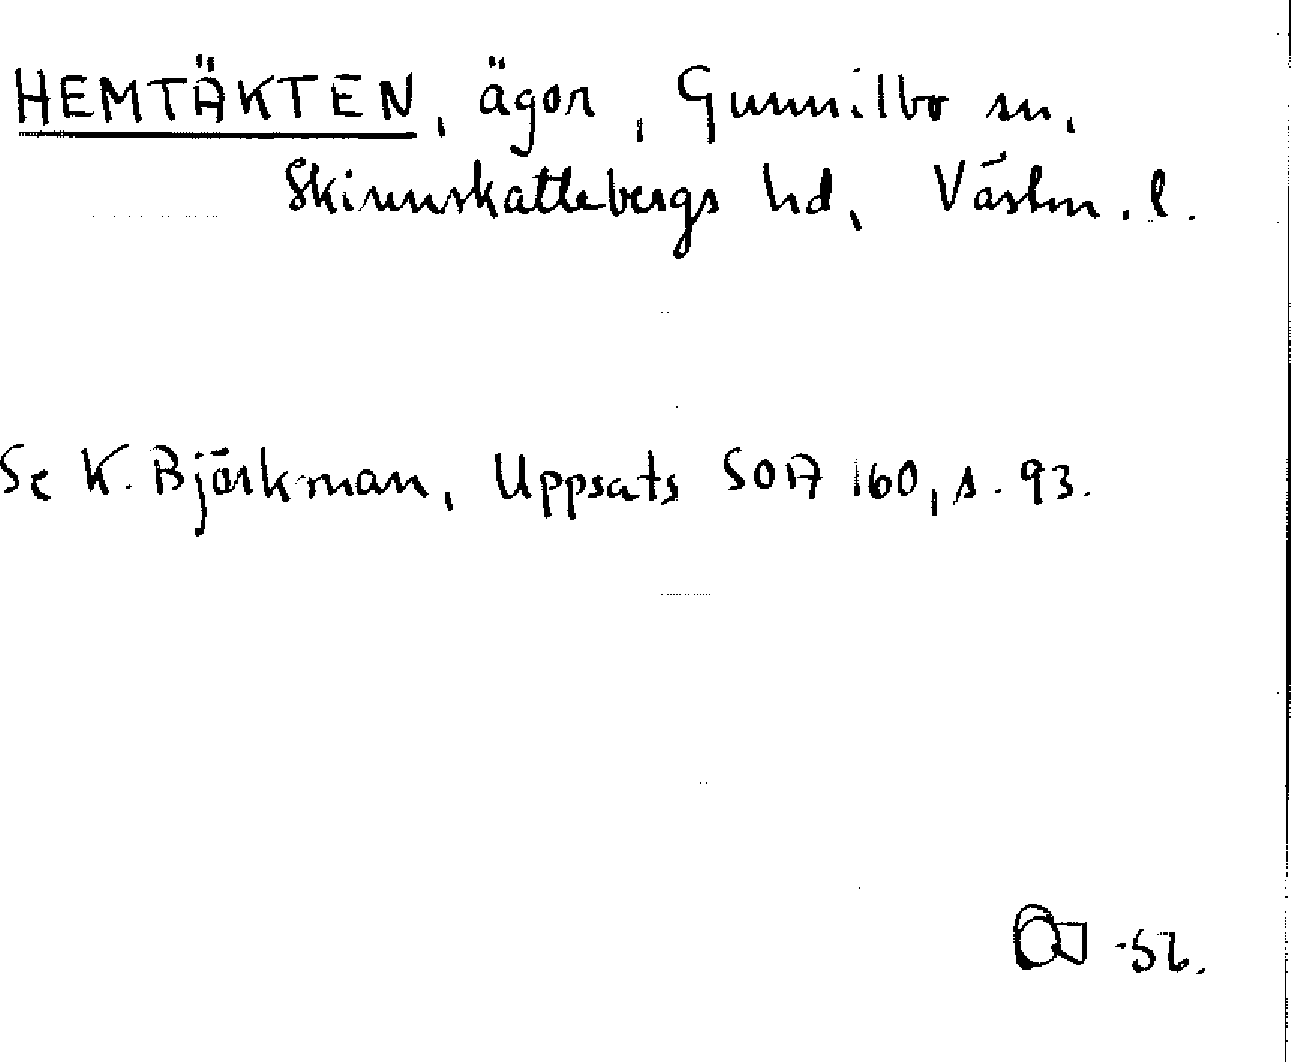 HEMTÄKTEN, ägor, Gunnilbo sn,
Skinnskattebergs hd, Västm. l.
Se K. Björkman, Uppsats SOA 160, s. 93.
-52.